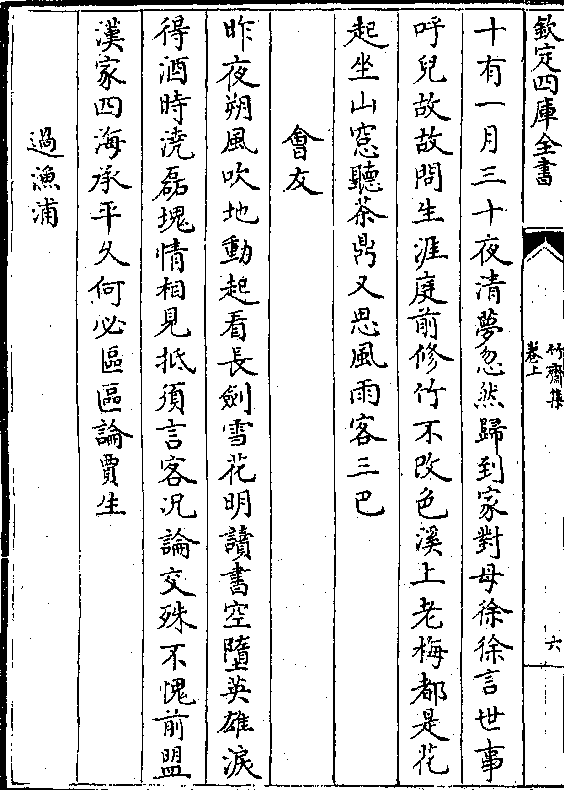 欽定四庫全書
竹齋集
卷上
六
十有一月三十夜清夢忽然歸到家對母徐徐言世事
呼兒故故問生涯庭前修竹不改色溪上老梅都是花
起坐山窓聽茶鼎又思風雨客三巴
會友
昨夜朔風吹地動起看長劍雪花明讀書空墮英雄淚
得酒時澆磊塊情相見抵須言客况論交殊不愧前盟
漢家四海承平久何必區區論賈生
過漁浦